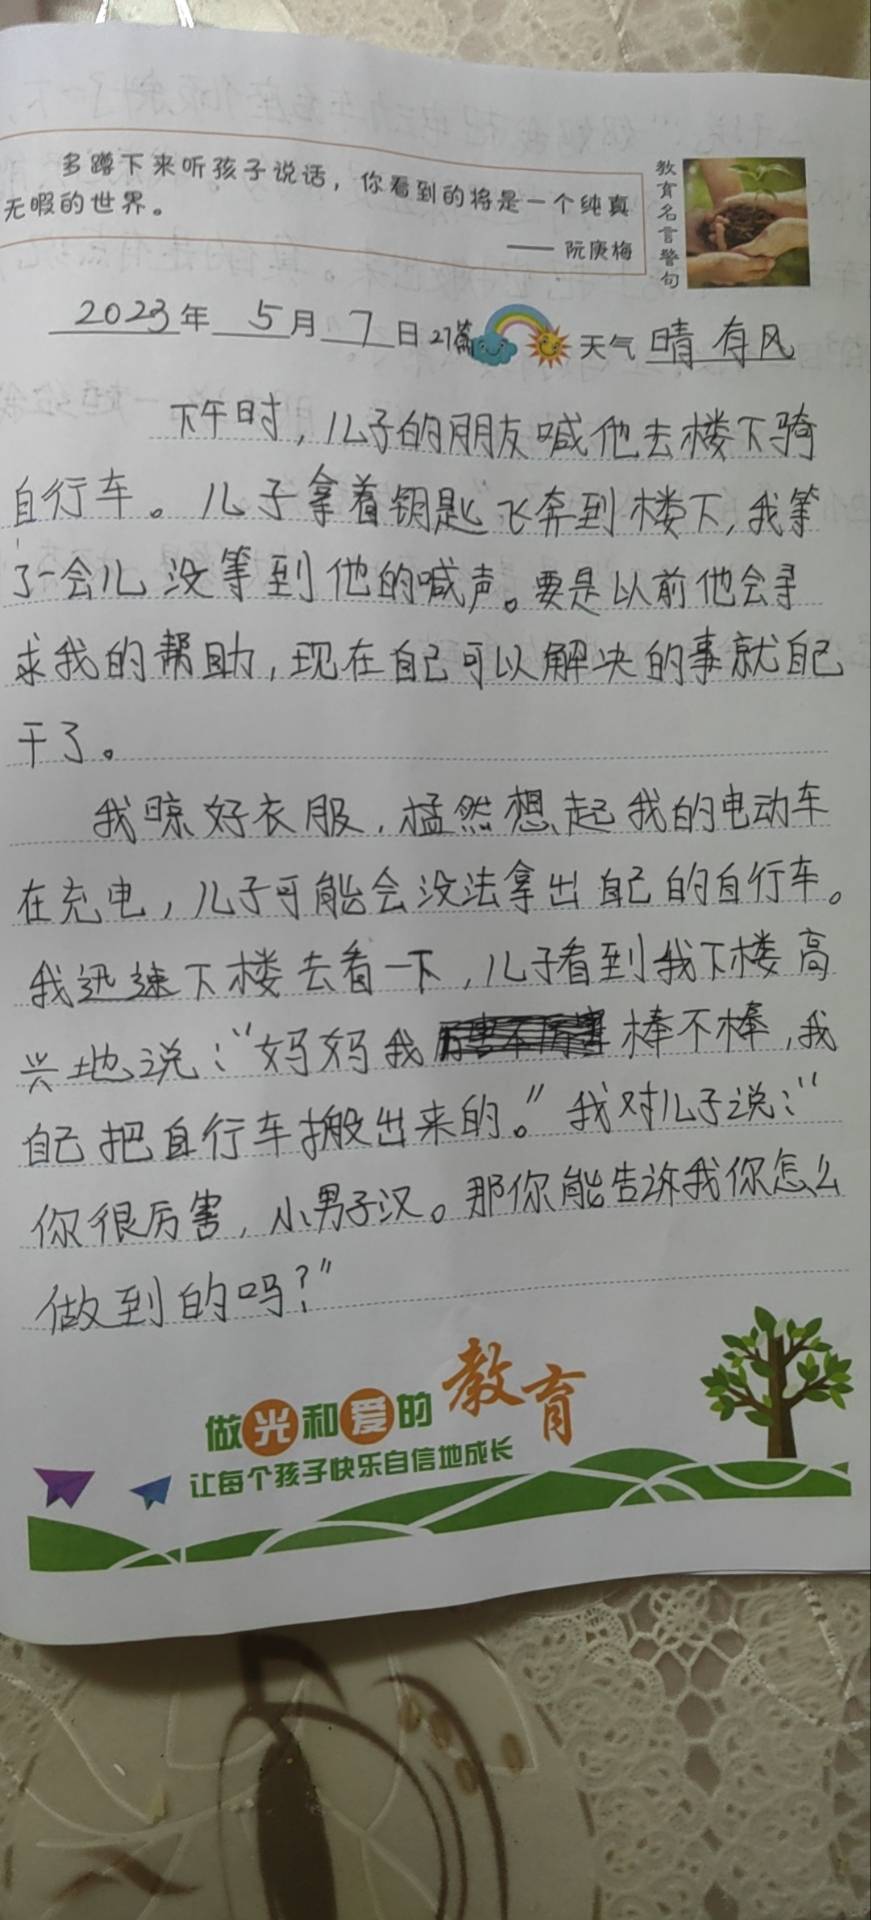 多蹲下来听孩子说话，你看到的将是一个纯真
无暇的世界。
—— 阮庚梅
教育名言警句
2023年 5月 7日 27篇 天气 晴 有风
下午时，儿子的朋友喊他去楼下骑
自行车。儿子拿着钥匙飞奔到楼下，我等
了一会儿没等到他的喊声。要是以前他会寻
求我的帮助，现在自己可以解决的事就自己
干了。
我晾好衣服，猛然想起我的电动车
在充电，儿子可能会没法拿出自己的自行车。
我迅速下楼去看一下，儿子看到我下楼高
兴地说：“妈妈我棒不棒，我
自己把自行车搬出来的。”我对儿子说：“
你很厉害，小男子汉。那你能告诉我你怎么
做到的吗？”
做光和爱的教育
让每个孩子快乐自信地成长